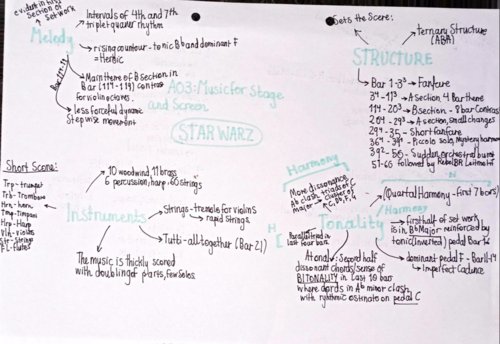 evident in first
Section of
set work
Melody
Intervals of 4th and 7th
triplet quaver rhythm
rising countour - tonic Bb and dominant F
= Heroic
Main theme of B section in
Bar (11⁴-19) contrast
for violin octaves.
less forceful dynamic
Stepwise movement
AO3: Music for Stage
and Screen
STAR WARZ
Sets the Scene:
Ternary Structure
(ABA)
STRUCTURE
Bar 1-3³ → Fanfare
3⁴-11³ → A section, 4 Bar theme
11⁴-20³ → B section - 8 bar Contrast
20⁴-29³ → A section, small changes
29⁴-35 - Short fanfare
36⁴-39¹ - Piccolo solo, Mystery harmony
39² - Sudden orchestral burst
51-66 followed by Rebel BR Leitmotif
Short Scene:
Trp - trumpet
Trb - Trombone
Hrn - horn
Tmp - Timpani
Hrp - Harp
Vln - violins
Str - Strings
Fl - Flutes
Instruments
10 woodwind, 11 brass
6 percussion, harp, 60 strings
Strings - tremolo for violins
→ rapid Strings
Tutti - all together (Bar 21)
The music is thickly scored
with doubling of parts, few solos.
Harmony
More dissonance
Ab clash, triads of C
major → cluster of
Parallel triad in
last four bars
Tonality
(Quartal Harmony - first 7 bars)
Harmony
first half of set work
is in Bb Major - reinforced by
tonic (inverted) pedal Bar
dominant pedal F - Bar 11-14
Imperfect Cadence
Atonal: Second half
dissonant chords/sense of
BITONALITY in last 10 bars
where chords in Ab minor clash
with rhythmic ostinato on pedal C